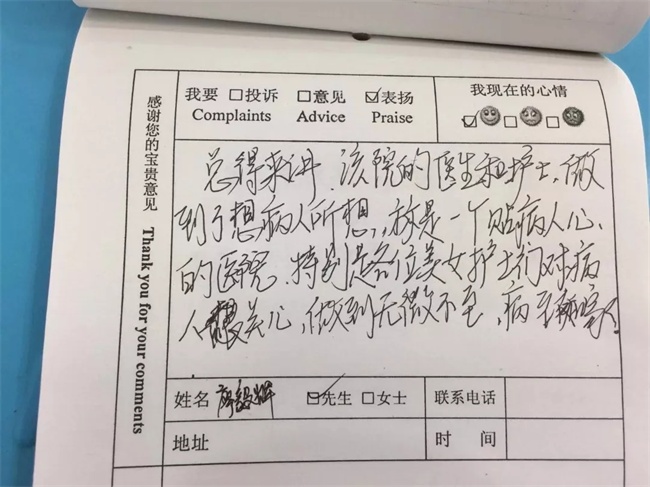 感谢您的宝贵意见 Thank you for your comments
我要 □投诉 □意见 ☑表扬
Complaints Advice Praise
我现在的心情
总得来讲,该院的医生和护士,做
到了想病人所想,故是一个贴病人心
的医院.特别是各位美女护士们对病
人很关心,做到无微不至,病
姓名 ☑先生 □女士 联系电话
地址 时 间